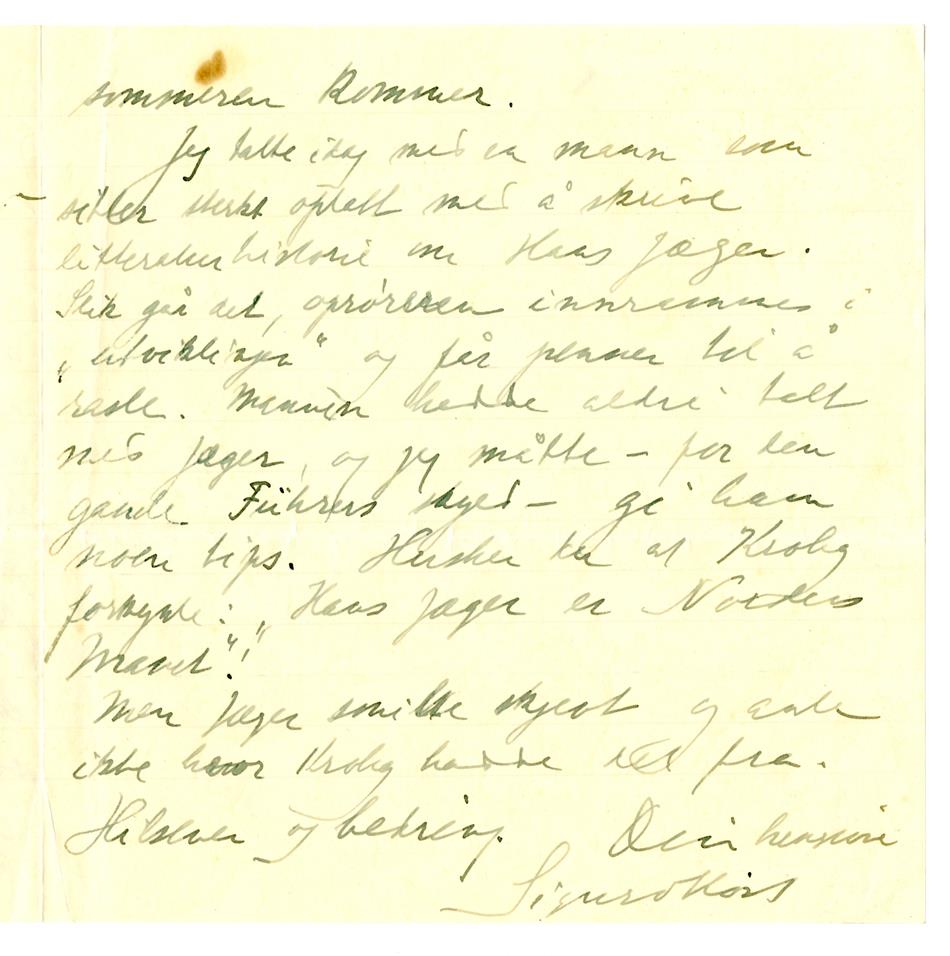 sommeren kommer.
Jeg talte idag med en mann som
sitter sterkt optatt med å skrive
litteraturhistorie om Hans Jæger.
Slik går det, oprøreren innrammes i
„utviklingen" og får penner til å
rasle. Mannen hadde aldri talt
med Jæger, og jeg måtte – for den
gamle Führers skyld – gi ham
noen tips. Husker du at Krohg
forkynte: „Hans Jæger er Nordens
Marat"!
Men Jæger smilte skjevt og ante
ikke hvor Krohg hadde det fra.
Hilsener og bedring. Din hengivne
Sigurd